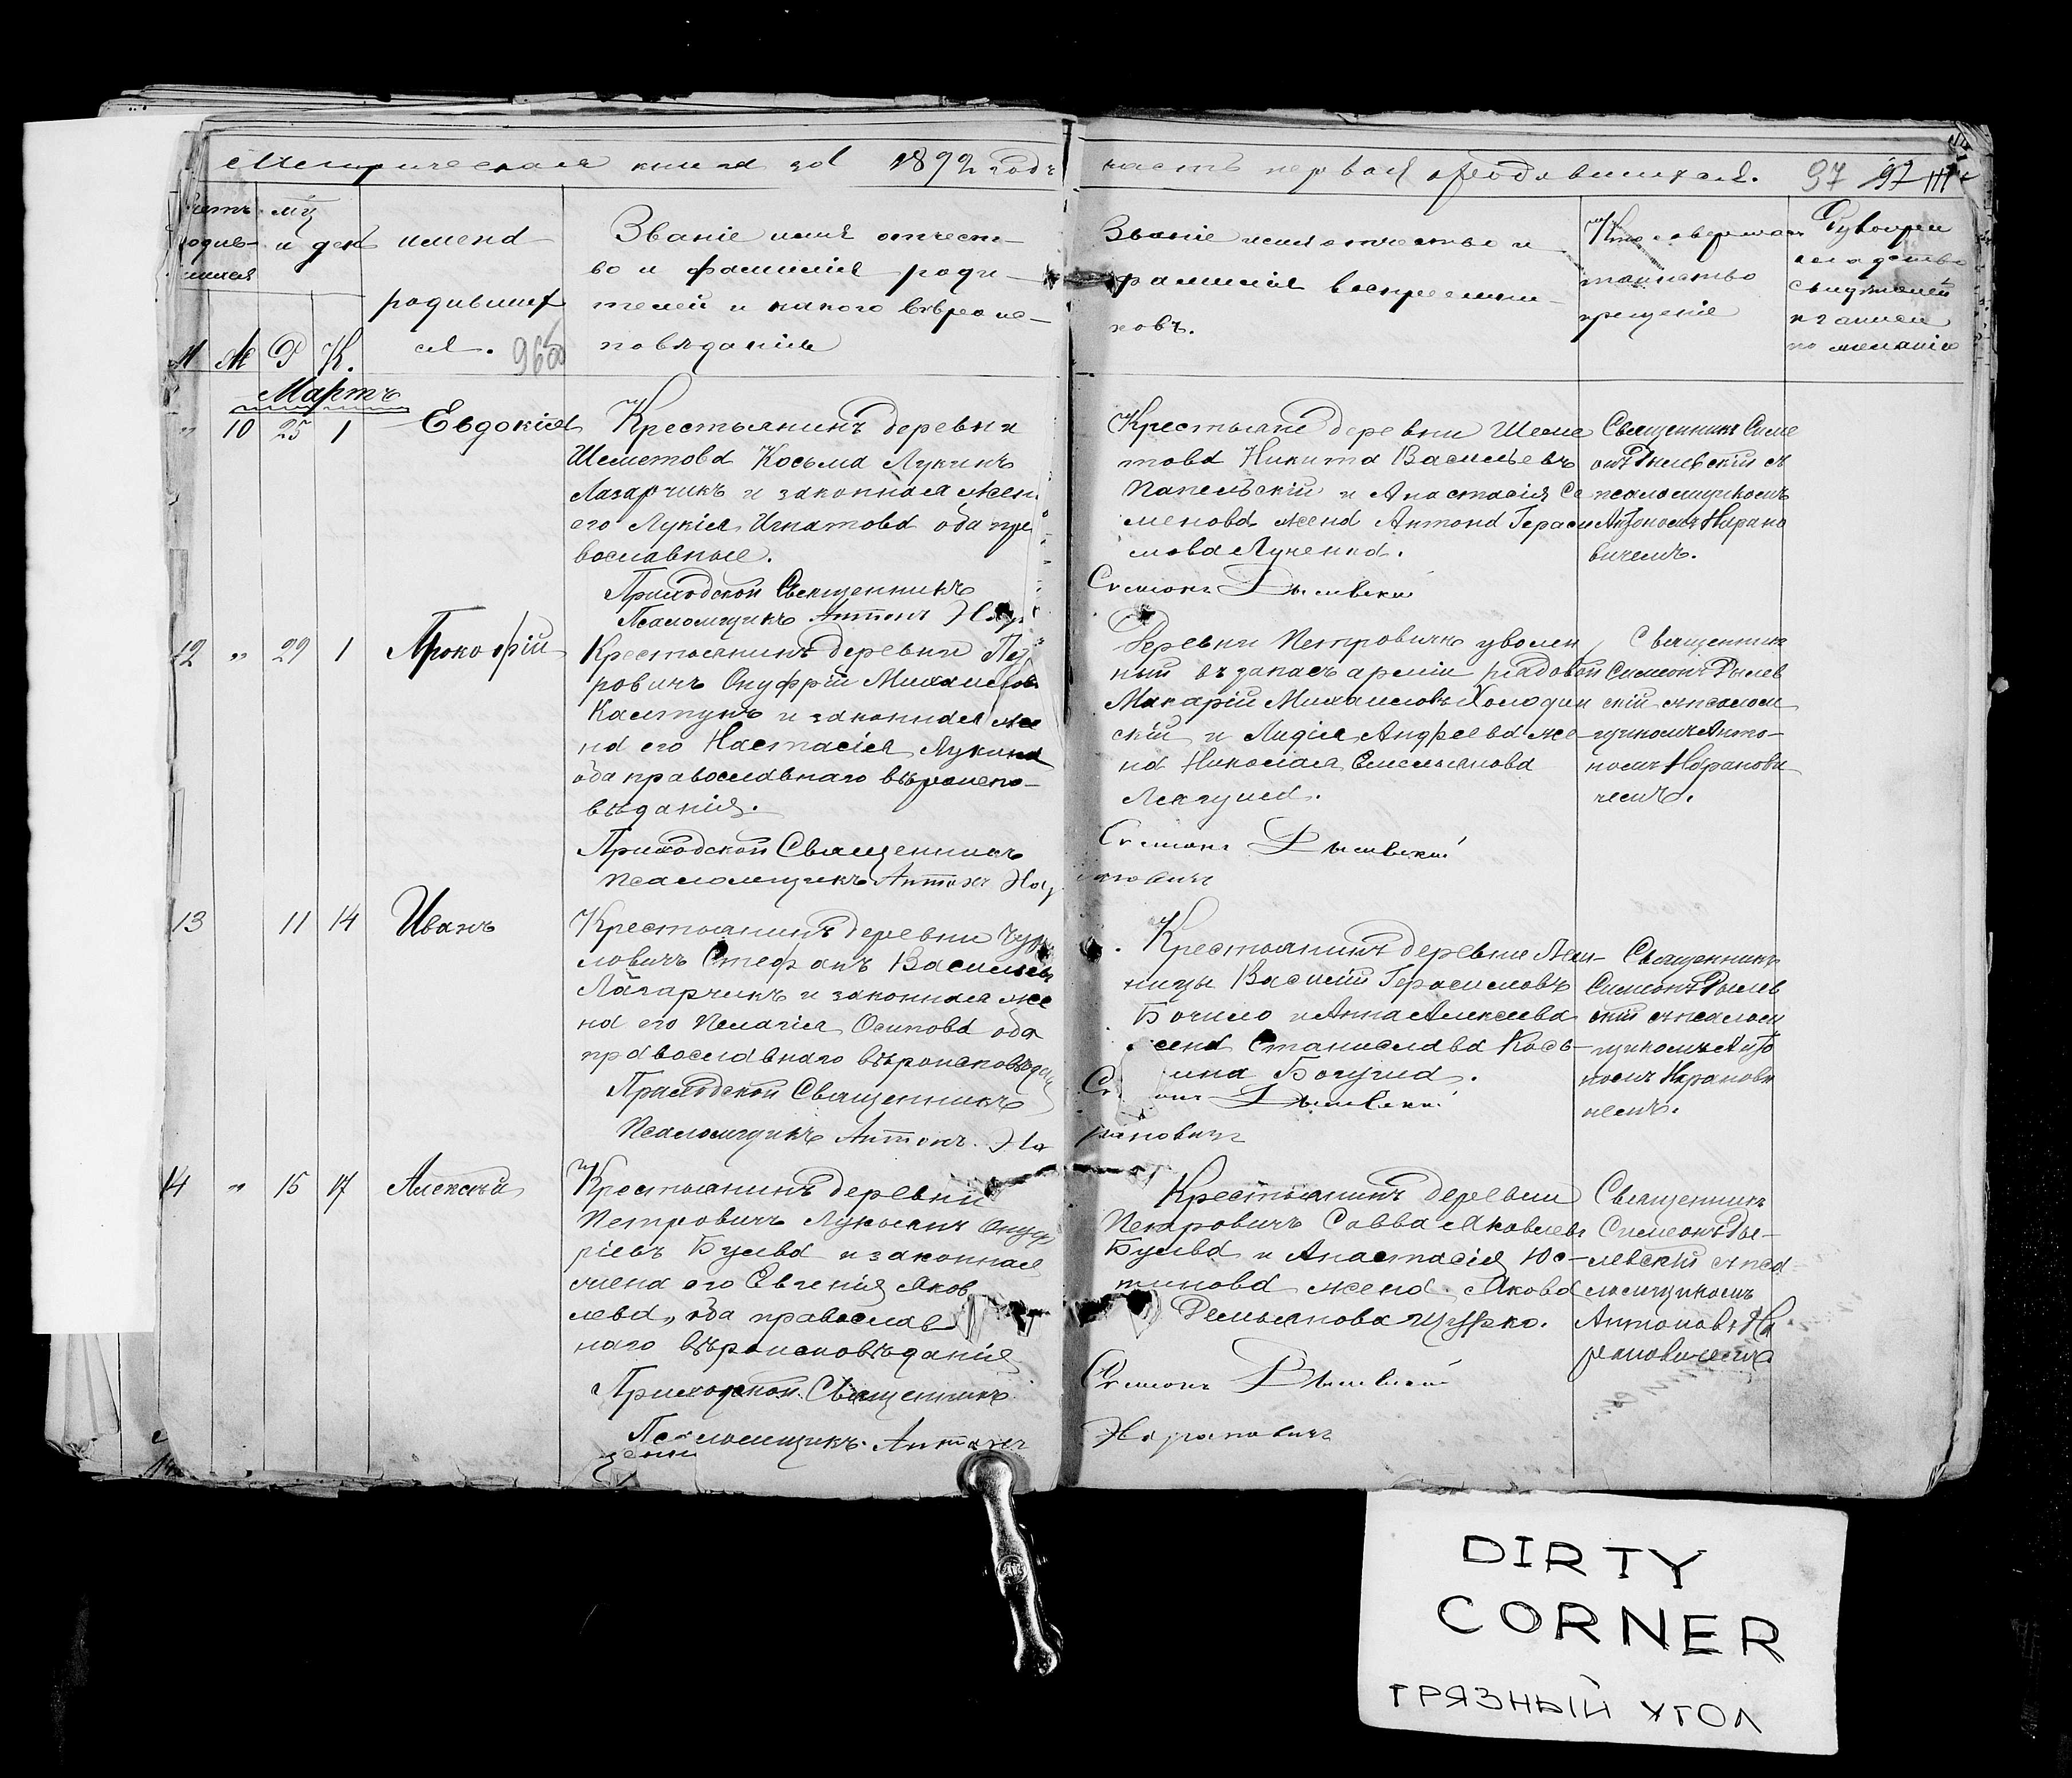 Метрическая книга за 1892 годъ
часть первая о родившихся. 97 97
Счетъ родив-шихся
Мц и день
имена родившихся. 966
Званіе имя отчест-
во и фамилія роди-
телей и какого вѣроис-
повѣданія
М Ж Р К.
Званіе имя отчество и
фамилія воспреемни-
ковъ.
Кто совершалъ
таинство
крещенія
Рукопри
свидѣтелей
о записи
по желанію
Мартъ
" 10 25 1 Евдокія
Крестьянинъ деревни
Шеметова Косьма Лукинъ
Лазарчикъ и законная жен
его Лукія Игнатова оба пра
вославные.
Приходской Священникъ
Псаломщикъ Антонъ
Крестьяне деревни Шеме
това Никита Васильевъ
Папельскій и Анастасія Се
менова жена Антона Гераси
мова Лученка.
Симеонъ Рылевскій
Священникъ Симе
онъ Рылевскій съ
псаломщикомъ
Антономъ Нарано
вичемъ.
12 " 29 1 Прокофій
Крестьянинъ деревни Пет
ровичъ Онуфрій Михаиловъ
Калтунъ и законная же
на его Настасія Лукина
оба православнаго вѣроиспо-
вѣданія.
Приходской Священникъ
Псаломщикъ Антонъ Нар
Деревни Петровичъ уволен
ный въ запасъ арміи рядовой
Макарій Михаиловъ Холодин
скій и Лидія Андреева же-
на Николая Емельянова
Симеонъ Рылевскій
ановичъ
Священникъ
Симеонъ Рылев
скій съ псалом
щикомъ Анто-
номъ Наранови
чемъ.
13 " 11 14 Иванъ
Крестьянинъ деревни
ловичъ Стефанъ Васильевъ
Лазарчикъ и законная же
на его Пелагія Осипова оба
православнаго вѣроисповѣдан
Приходской Священникъ
Псаломщикъ Антонъ На
Крестьянинъ деревни
ницы Василій Герасимовъ
Бочило и Анна Алексѣева
жена Станислава Кось-
мина Богуша.
Симеонъ Рылевскій
рановичъ
Священникъ
Симеонъ Рылев
скій съ псалом
щикомъ Анто
номъ Наранови
чемъ.
14 " 15 17 Алексѣй
Крестьянинъ деревни
Петровичъ Лукьянъ Онуф
ріевъ Бульва и законная
жена его Евгенія Яков
лева, оба православ
наго вѣроисповѣданія
Приходской Священникъ
Псаломщикъ Антонъ
Крестьянинъ деревни
Петровичъ Савва Яковлевъ
Бульва и Анастасія Юс-
тинова жена Якова
Демьянова
Симеонъ Рылевскій
Нарановичъ
Священникъ
Симеонъ Ры-
левскій съ пса
ломщикомъ
Антономъ На
рановичемъ
DIRTY
CORNER
ГРЯЗНЫЙ УГОЛ